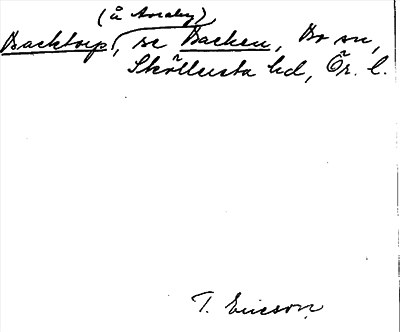 (å Annaby)
Backtorp, se Backen, Bo sn,
Sköllersta hd, Ör. l.
T. Ericson